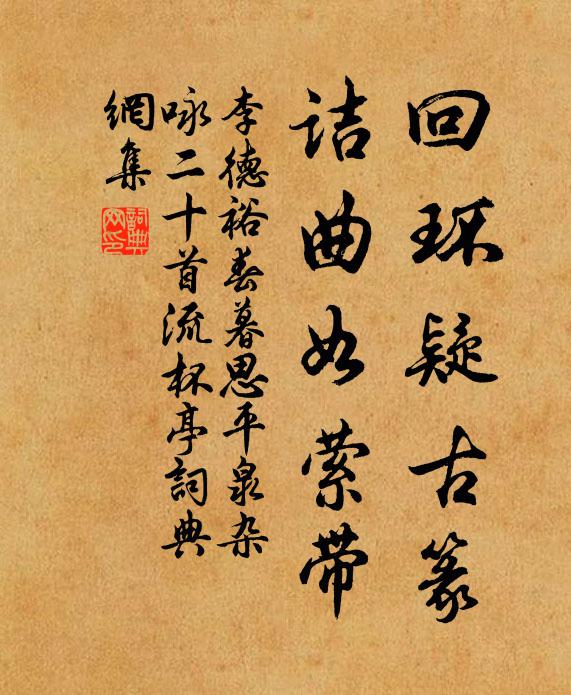 回环疑古篆
诘曲如萦带
李德裕春暮思平泉杂
咏二十首流杯亭詞典
網集
詞典网印